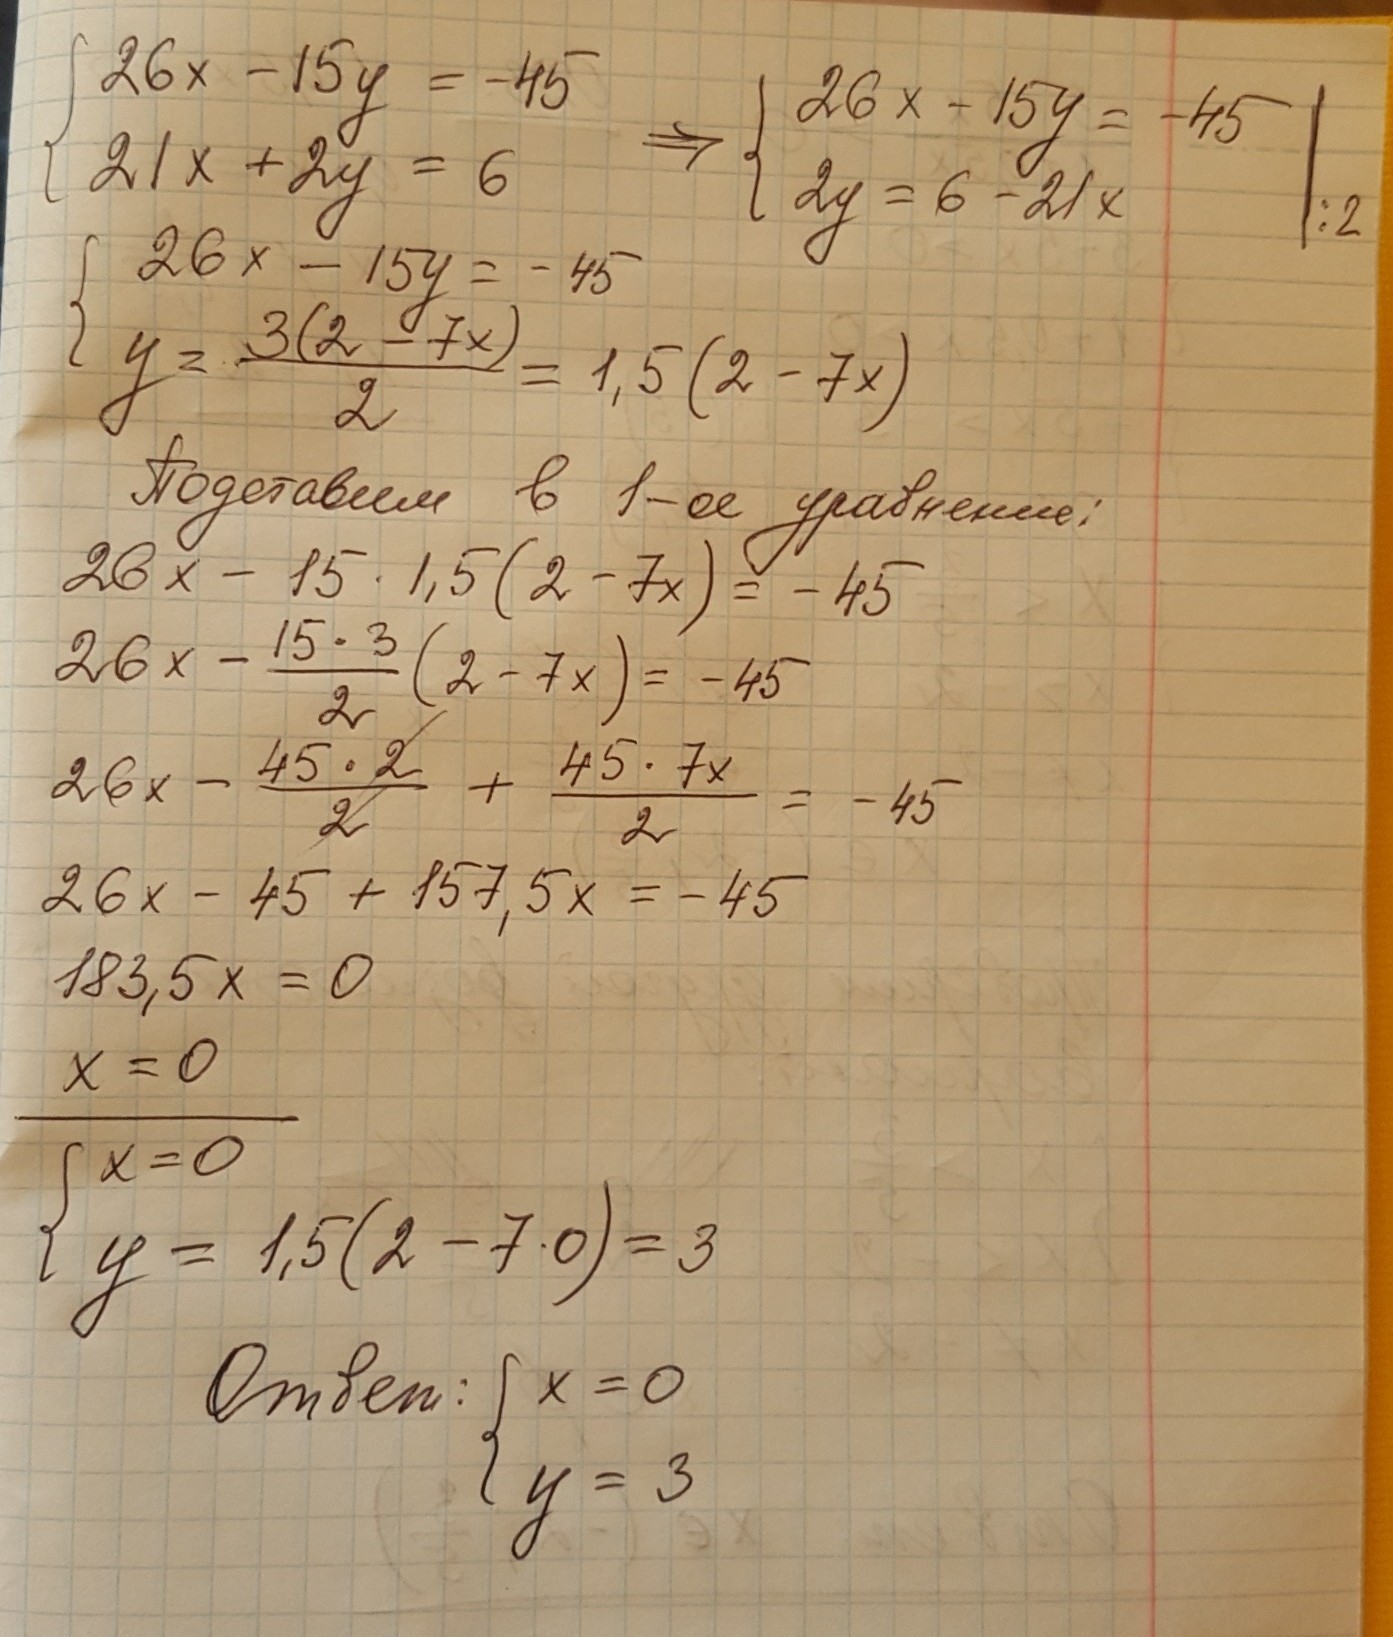 { 26x - 15y = -45
21x + 2y = 6
⇒ { 26x - 15y = -45
2y = 6 - 21x | :2
{ 26x - 15y = -45
y = 3(2 - 7x)/2 = 1,5(2 - 7x)
Подставим в 1-ое уравнение:
26x - 15 · 1,5(2 - 7x) = -45
26x - 15·3/2 (2 - 7x) = -45
26x - 45·2/2 + 45·7x/2 = -45
26x - 45 + 157,5x = -45
183,5x = 0
x = 0
{ x = 0
y = 1,5(2 - 7·0) = 3
Ответ: { x = 0
y = 3